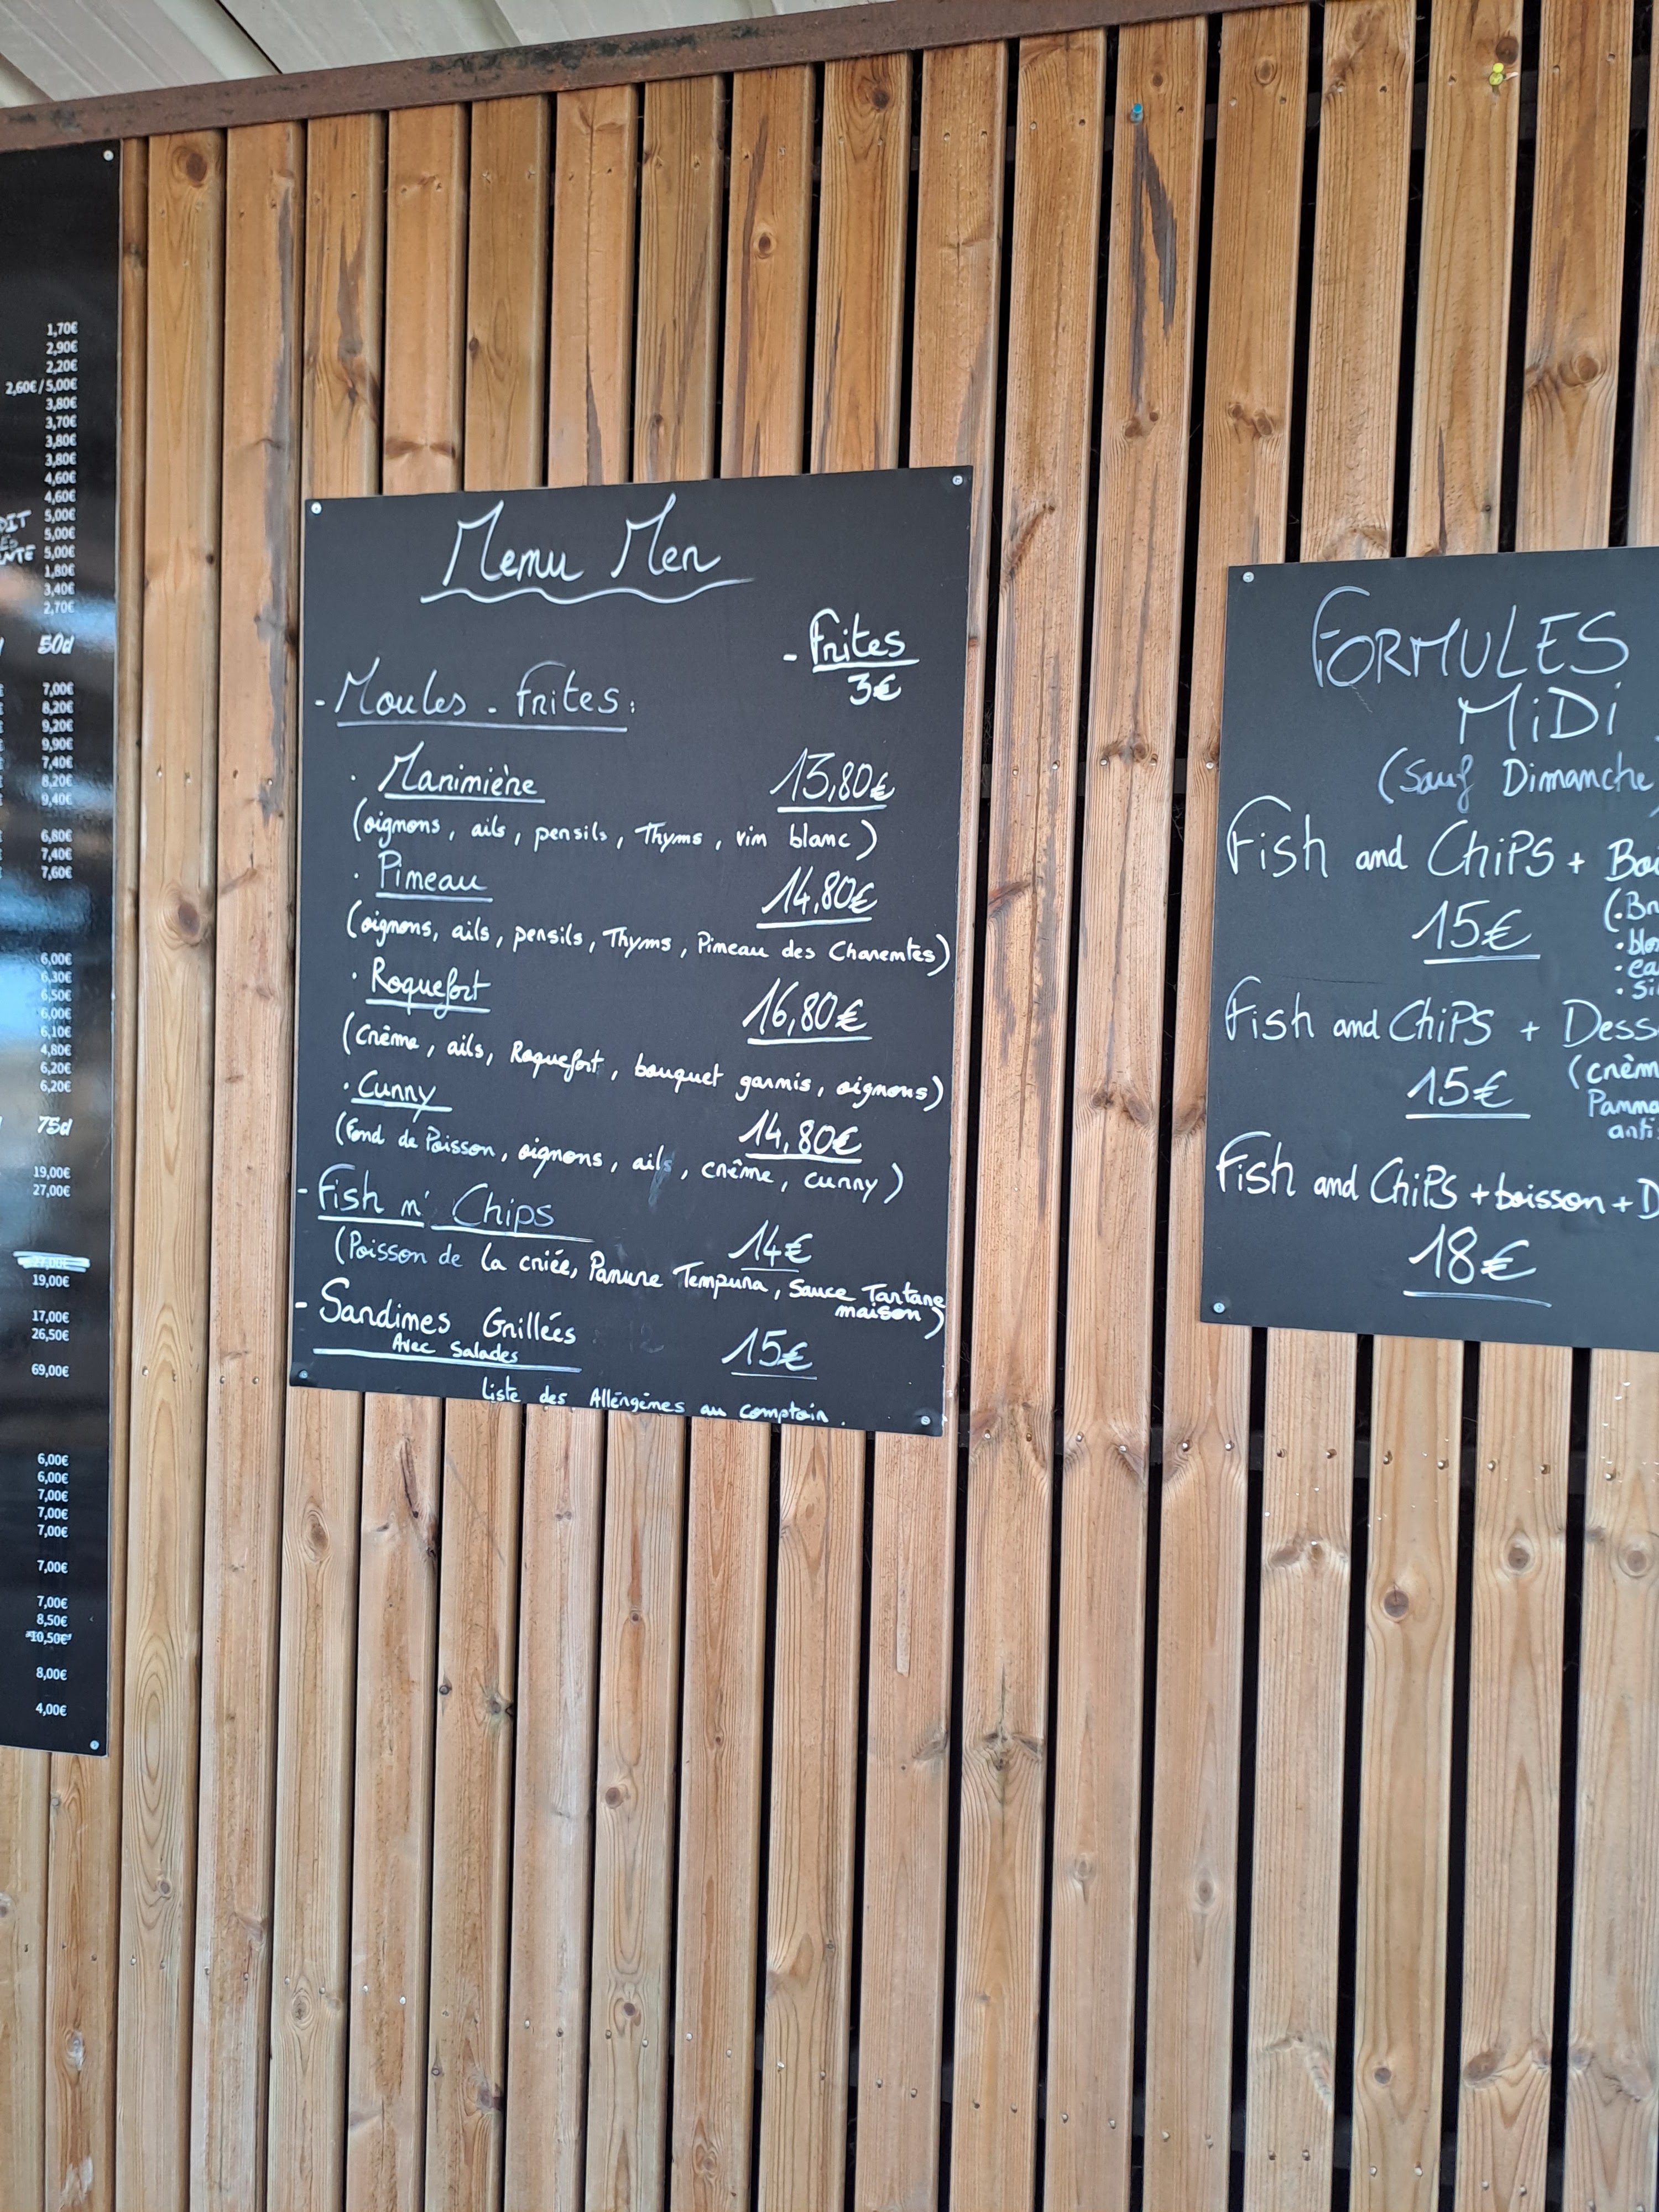 1,70€
2,90€
2,20€
2,60€ / 5,00€
3,80€
3,70€
3,80€
3,80€
4,60€
4,60€
5,00€
5,00€
5,00€
1,80€
3,40€
2,70€
50cl
7,00€
8,20€
9,20€
9,90€
7,40€
8,20€
9,40€
6,80€
7,40€
7,60€
6,00€
6,30€
6,50€
6,00€
6,10€
4,80€
6,20€
6,20€
75cl
19,00€
27,00€
19,00€
17,00€
26,50€
69,00€
6,00€
6,00€
7,00€
7,00€
7,00€
7,00€
7,00€
8,50€
10,50€
8,00€
4,00€
Menu Mer
- Frites
3€
- Moules - Frites :
· Marinière 13,80€
(oignons, ails, persils, Thyms, vin blanc)
· Pineau 14,80€
(oignons, ails, persils, Thyms, Pineau des Charentes)
· Roquefort 16,80€
(crème, ails, Roquefort, bouquet garnis, oignons)
· Curry 14,80€
(Fond de Poisson, oignons, ails, crême, curry)
- Fish n' Chips 14€
(Poisson de la criée, Panure Tempura, Sauce Tartare
maison)
- Sardines Grillées 15€
Avec Salades
Liste des Allérgèmes au comptoir.
FORMULES
MiDi
(Sauf Dimanche)
Fish and ChiPS +
15€
Fish and ChiPS +
15€
(crèm
Fish and ChiPS + boisson + D
18€